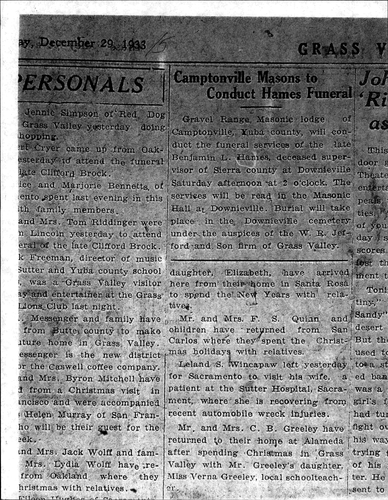 ay, December 29, 1933 15
GRASS V
PERSONALS
Jennie Simpson of Red Dog
Grass Valley yesterday doing
hopping.
rt Cryer came up from Oak-
esterday to attend the funeral
late Clifford Brock.
ice and Marjorie Bennetts, of
ento spent last evening in this
th family members.
and Mrs. Tom Riddinger were
m Lincoln yesterday to attend
eral of the late Clifford Brock.
k Freeman, director of music
Sutter and Yuba county school
, was a Grass Valley visitor
y and entertainer at the Grass
Lions Club last night.
Messenger and family have
from Butte county to make
uture home in Grass Valley.
essenger is the new district
or the Caswell coffee company.
nd Mrs. Byron Mitchell have
d from a Christmas visit in
ancisco and were accompanied
Helen Murray of San Fran-
ho will be their guest for the
eek.
nd Mrs. Jack Wolff and fam-
Mrs. Lydia Wolff have re-
from Oakland where they
hristmas with relatives.
Camptonville Masons to
Conduct Hames Funeral
Gravel Range Masonic lodge of
Camptonville, Yuba county, will con-
duct the funeral services of the late
Benjamin L. Hames, deceased super-
visor of Sierra county at Downieville
Saturday afternoon at 2 o'clock. The
services will be read in the Masonic
Hall at Downieville. Burial will take
place in the Downieville cemetery
under the auspices of the W. R. Jef-
ford and Son firm of Grass Valley.
daughter, Elizabeth, have arrived
here from their home in Santa Rosa
to spend the New Years with rela-
tives.
Mr. and Mrs. F. S. Quinn and
children have returned from San
Carlos where they spent the Christ-
mas holidays with relatives.
Leland S. Wincapaw left yesterday
for Sacramento to visit his wife, a
patient at the Sutter Hospital, Sacra-
ment, where she is recovering from
recent automobile wreck injuries.
Mr. and Mrs. C. B. Greeley have
returned to their home at Alameda
after spending Christmas in Grass
Valley with Mr. Greeley's daughter,
Miss Verna Greeley, local schoolteach-
er.
Joh
'Ri
as
This
door
Theate
enterta
ties,
of you
day
scores
ment
Toni
tiny,
Sandy"
desert
But the
used to
to a st
ed ban
was a
girl's
had tur
fight ov
his way
trying
of his
er. He
sent to